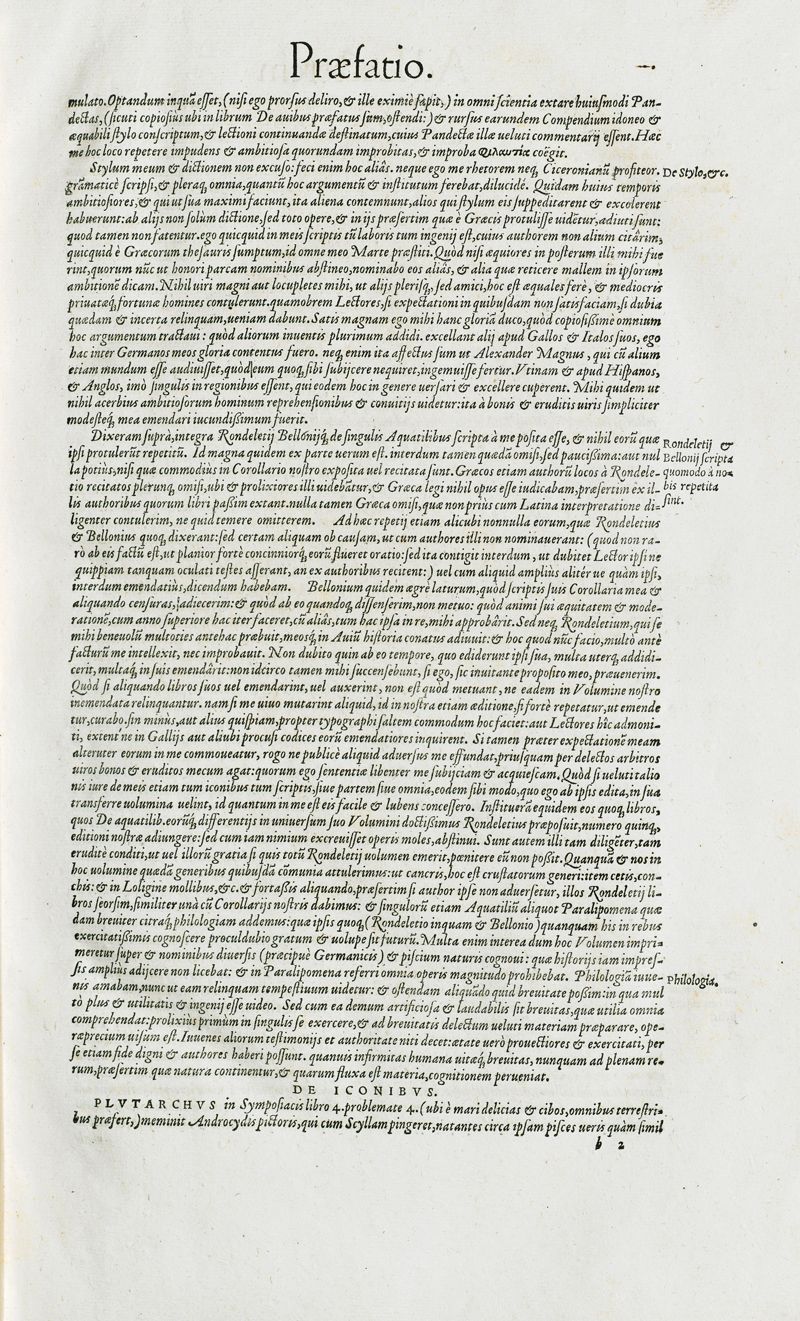 Præfatio.
mulato. Optandum inquā eſſet, (niſi ego prorſus deliro, & ille eximiè ſapit,) in omni ſcientia extare huiuſmodi Pan-
dectas, (ſicuti copioſius ubi in librum De auibus præfatus ſum, oſtendi:) & rurſus earundem Compendium idoneo &
æquabili ſtylo conſcriptum, & lectioni continuandæ deſtinatum, cuius Pandectæ illæ ueluti commentarij eſſent. Hæc
me hoc loco repetere impudens & ambitioſa quorundam improbitas, & improba φιλαυτία coëgit.
Stylum meum & dictionem non excuſo: feci enim hoc aliâs. neque ego me rhetorem neq; Ciceronianū profiteor.
De Stylo, &c.
grāmaticè ſcripſi, & pleraq; omnia, quantū hoc argumentū & inſtitutum ferebat, dilucidè. Quidam huius temporis
ambitioſiores, & qui ut ſua maximi faciunt, ita aliena contemnunt, alios qui ſtylum eis ſuppeditarent & excolerent
habuerunt: ab alijs non ſolùm dictione, ſed toto opere, & in ijs præſertim quæ è Græcis protuliſſe uidētur, adiuti ſunt:
quod tamen non fatentur. ego quicquid in meis ſcriptis tū laboris tum ingenij eſt, cuius authorem non alium citârim,
quicquid è Græcorum theſauris ſumptum, id omne meo Marte præſtiti. Quòd niſi æquiores in poſterum illi mihi fue
rint, quorum nūc ut honori parcam nominibus abſtineo, nominabo eos aliâs, & alia quæ reticere mallem in ipſorum
ambitionē dicam. Nihil uiri magni aut locupletes mihi, ut alijs pleriſq; ſed amici, hoc eſt æquales ferè, & mediocris
priuatæq; fortunæ homines contulerunt. quamobrem Lectores, ſi expectationi in quibuſdam non ſatisfaciam, ſi dubia
quædam & incerta relinquam, ueniam dabunt. Satis magnam ego mihi hanc gloriā duco, quòd copioſiſſimè omnium
hoc argumentum tractaui: quòd aliorum inuentis plurimum addidi. excellant alij apud Gallos & Italos ſuos, ego
hac inter Germanos meos gloria contentus fuero. neq; enim ita affectus ſum ut Alexander Magnus, qui cū alium
etiam mundum eſſe audiuiſſet, quòd eum quoq; ſibi ſubijcere nequiret, ingemuiſſe fertur. Vtinam & apud Hiſpanos,
& Anglos, imò ſingulis in regionibus eſſent, qui eodem hoc in genere uerſari & excellere cuperent. Mihi quidem ut
nihil acerbius ambitioſorum hominum reprehenſionibus & conuitijs uidetur: ita à bonis & eruditis uiris ſimpliciter
modeſteq; mea emendari iucundiſſimum fuerit.
Dixeram ſuprà, integra Rondeletij Bellonijq; de ſingulis Aquatilibus ſcripta à me poſita eſſe, & nihil eorū quæ
Rondeletij &
ipſi protulerūt repetitū. Id magna quidem ex parte uerum eſt. interdum tamen quædā omiſi, ſed pauciſſima: aut nul
Bellonij ſcripta
la potiùs, niſi quæ commodius in Corollario noſtro expoſita uel recitata ſunt. Græcos etiam authorū locos à Rondele-
quomodo à no-
tio recitatos plerunq; omiſi, ubi & prolixiores illi uidebātur, & Græca legi nihil opus eſſe iudicabam, præſertim ex il-
bis repetita
lis authoribus quorum libri paſſim extant. nulla tamen Græca omiſi, quæ non priùs cum Latina interpretatione di-
ſint.
ligenter contulerim, ne quid temere omitterem. Ad hæc repetij etiam alicubi nonnulla eorum, quæ Rondeletius
& Bellonius quoq; dixerant: ſed certam aliquam ob cauſam, ut cum authores illi non nominauerant: (quod non ra-
rò ab eis factū eſt, ut planior fortè concinniorq; eorū flueret oratio: ſed ita contigit interdum, ut dubitet Lector ipſi ne
quippiam tanquam oculati teſtes aſſerant, an ex authoribus recitent:) uel cum aliquid ampliùs alitér ue quàm ipſi,
interdum emendatiùs, dicendum habebam. Bellonium quidem ægre laturum, quòd ſcriptis ſuis Corollaria mea &
aliquando cenſuras, adiecerim: & quòd ab eo quandoq; diſſenſerim, non metuo: quòd animi ſui æquitatem & mode-
rationē, cum anno ſuperiore hac iter faceret, cū aliâs, tum hac ipſa in re, mihi approbârit. Sed neq; Rondeletium, qui ſe
mihi beneuolū multoties antehac præbuit, meosq; in Auiū hiſtoria conatus adiuuit: & hoc quod nūc facio, multò antè
facturū me intellexit, nec improbauit. Non dubito quin ab eo tempore, quo ediderunt ipſi ſua, multa uterq; addidi-
cerit, multaq; in ſuis emendârit: non idcirco tamen mihi ſuccenſebunt, ſi ego, ſic inuitante propoſito meo, præuenerim.
Quòd ſi aliquando libros ſuos uel emendarint, uel auxerint, non eſt quòd metuant, ne eadem in Volumine noſtro
inemendata relinquantur. nam ſi me uiuo mutarint aliquid, id in noſtra etiam æditione, ſi fortè repetatur, ut emende
tur, curabo. ſin minus, aut alius quiſpiam, propter typographi ſaltem commodum hoc faciet: aut Lectores hîc admoni-
ti, extent'ne in Gallijs aut aliubi procuſi codices eorū emendatiores inquirent. Si tamen præter expectationē meam
alteruter eorum in me commoueatur, rogo ne publicè aliquid aduerſus me effundat, priuſquam per delectos arbitros
uiros bonos & eruditos mecum agat: quorum ego ſententiæ libenter me ſubijciam & acquieſcam. Quòd ſi ueluti talio
nis iure de meis etiam tum iconibus tum ſcriptis, ſiue partem ſiue omnia, eodem ſibi modo, quo ego ab ipſis edita, in ſua
transferre uolumina uelint, id quantum in me eſt eis facile & lubens conceſſero. Inſtituerā equidem eos quoq; libros,
quos De aquatilib. eorūq; differentijs in uniuerſum ſuo Volumini doctiſſimus Rondeletius præpoſuit, numero quinq;
editioni noſtræ adiungere: ſed cum iam nimium excreuiſſet operis moles, abſtinui. Sunt autem illi tam diligēter, tam
eruditè conditi, ut uel illorū gratia ſi quis totū Rondeletij uolumen emerit, pœnitere eū non poſſit. Quanquā & nos in
hoc uolumine quædā generibus quibuſdā cōmunia attulerimus: ut cancris, hoc eſt cruſtatorum generi: item cetis, con-
chis: & in Loligine mollibus, &c. & fortaſſis aliquando, præſertim ſi author ipſe non aduerſetur, illos Rondeletij li-
bros ſeorſim, ſimiliter unà cū Corollarijs noſtris dabimus: & ſingulorū etiam Aquatiliū aliquot Paralipomena quæ
dam breuiter citraq; philologiam addemus: quæ ipſis quoq; (Rondeletio inquam & Bellonio) quanquam his in rebus
exercitatiſſimis cognoſcere proculdubio gratum & uolupe ſit futurū. Multa enim interea dum hoc Volumen impri-
meretur ſuper & nominibus diuerſis (præcipuè Germanicis) & piſcium naturis cognoui: quæ hiſtorijs iam impreſ-
ſis ampliùs adijcere non licebat: & in Paralipomena referri omnia operis magnitudo prohibebat. Philologiā iuue-
Philologia.
nis amabam, nunc ut eam relinquam tempeſtiuum uidetur: & oſtendam aliquādo quid breuitate poſſim: in qua mul
tò plus & utilitatis & ingenij eſſe uideo. Sed cum ea demum artificioſa & laudabilis ſit breuitas, quæ utilia omnia
comprehendat: prolixiùs primùm in ſingulis ſe exercere, & ad breuitatis delectum ueluti materiam præparare, ope-
ræprecium uiſum eſt. Iuuenes aliorum teſtimonijs et authoritate niti decet: ætate uerò prouectiores & exercitati, per
ſe etiam fide digni & authores haberi poſſunt. quanuis infirmitas humana uitæq; breuitas, nunquam ad plenam re-
rum, præſertim quæ natura continentur, & quarum fluxa eſt materia, cognitionem perueniat.
DE ICONIBVS.
PLVTARCHVS in Sympoſiacis libro 4. problemate 4. (ubi è mari delicias & cibos, omnibus terreſtri-
bus præfert,) meminit Androcydis pictoris, qui cum Scyllam pingeret, natantes circa ipſam piſces ueris quàm ſimil
b 2